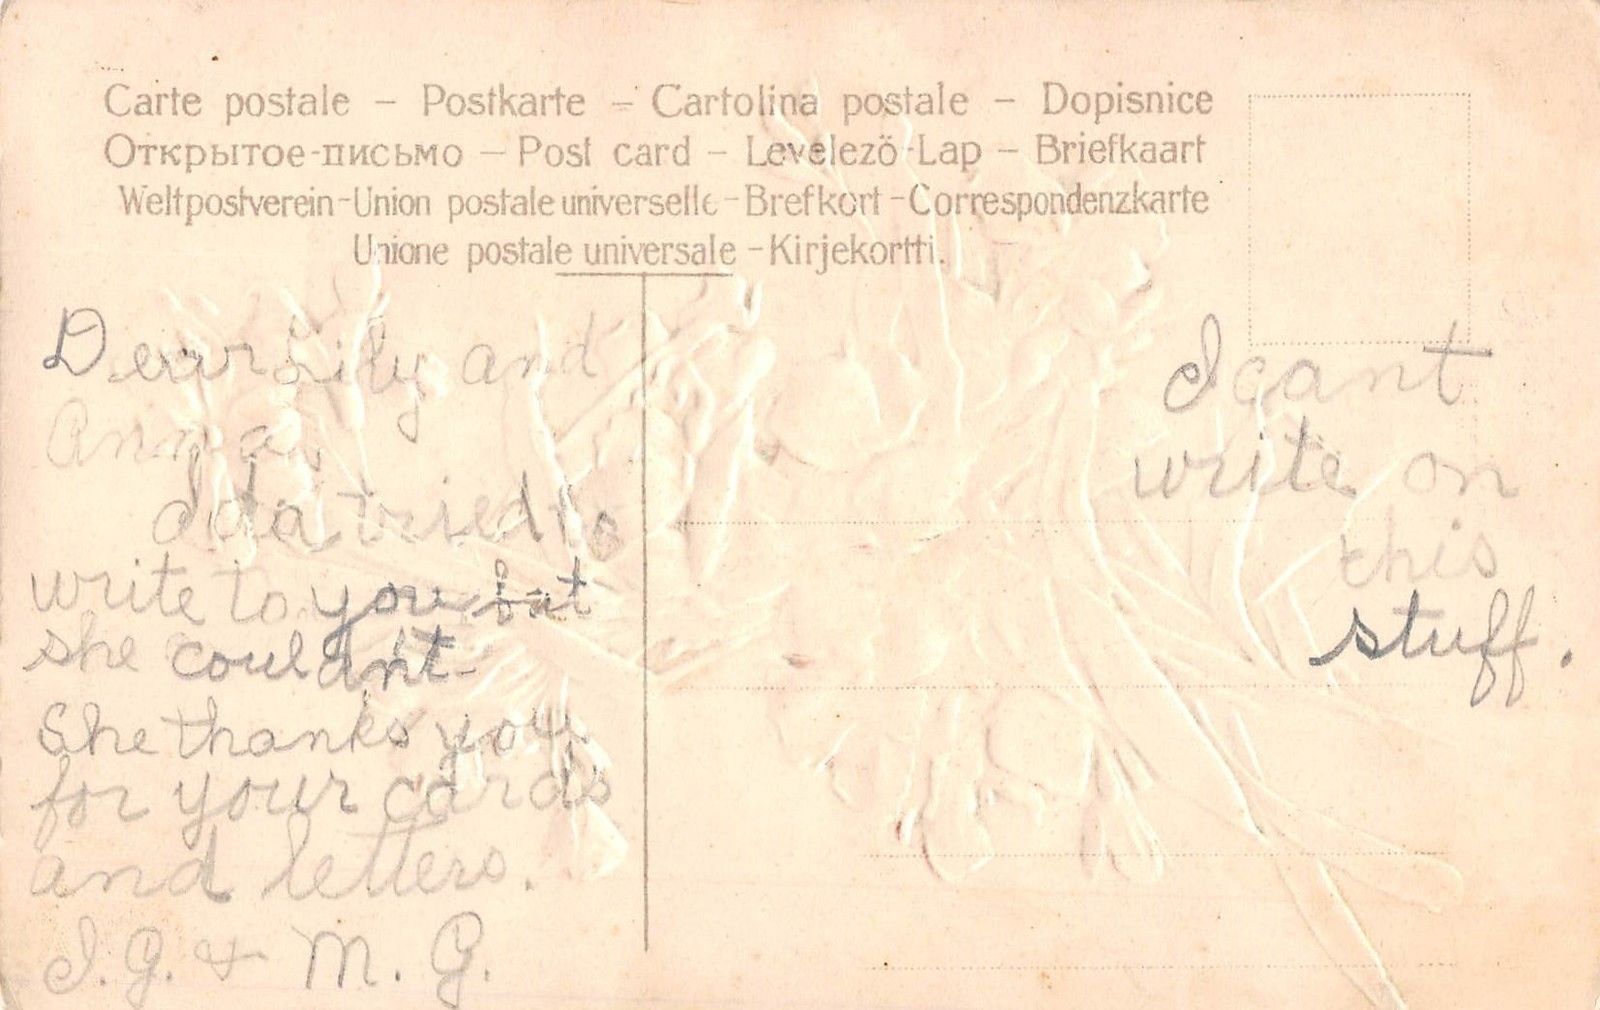 Carte postale – Postkarte – Cartolina postale – Dopisnice
Открытое-письмо – Post card – Levelezö-Lap – Briefkaart
Weltpostverein-Union postale universelle-Brefkort-Correspondenzkarte
Unione postale universale-Kirjekortti.
Dear Lily and
Anna,
Ida tried to
write to you but
she couldnt
She thanks you
for your cards
and letters.
I.G. & M.G.
I cant
write on
this
stuff.